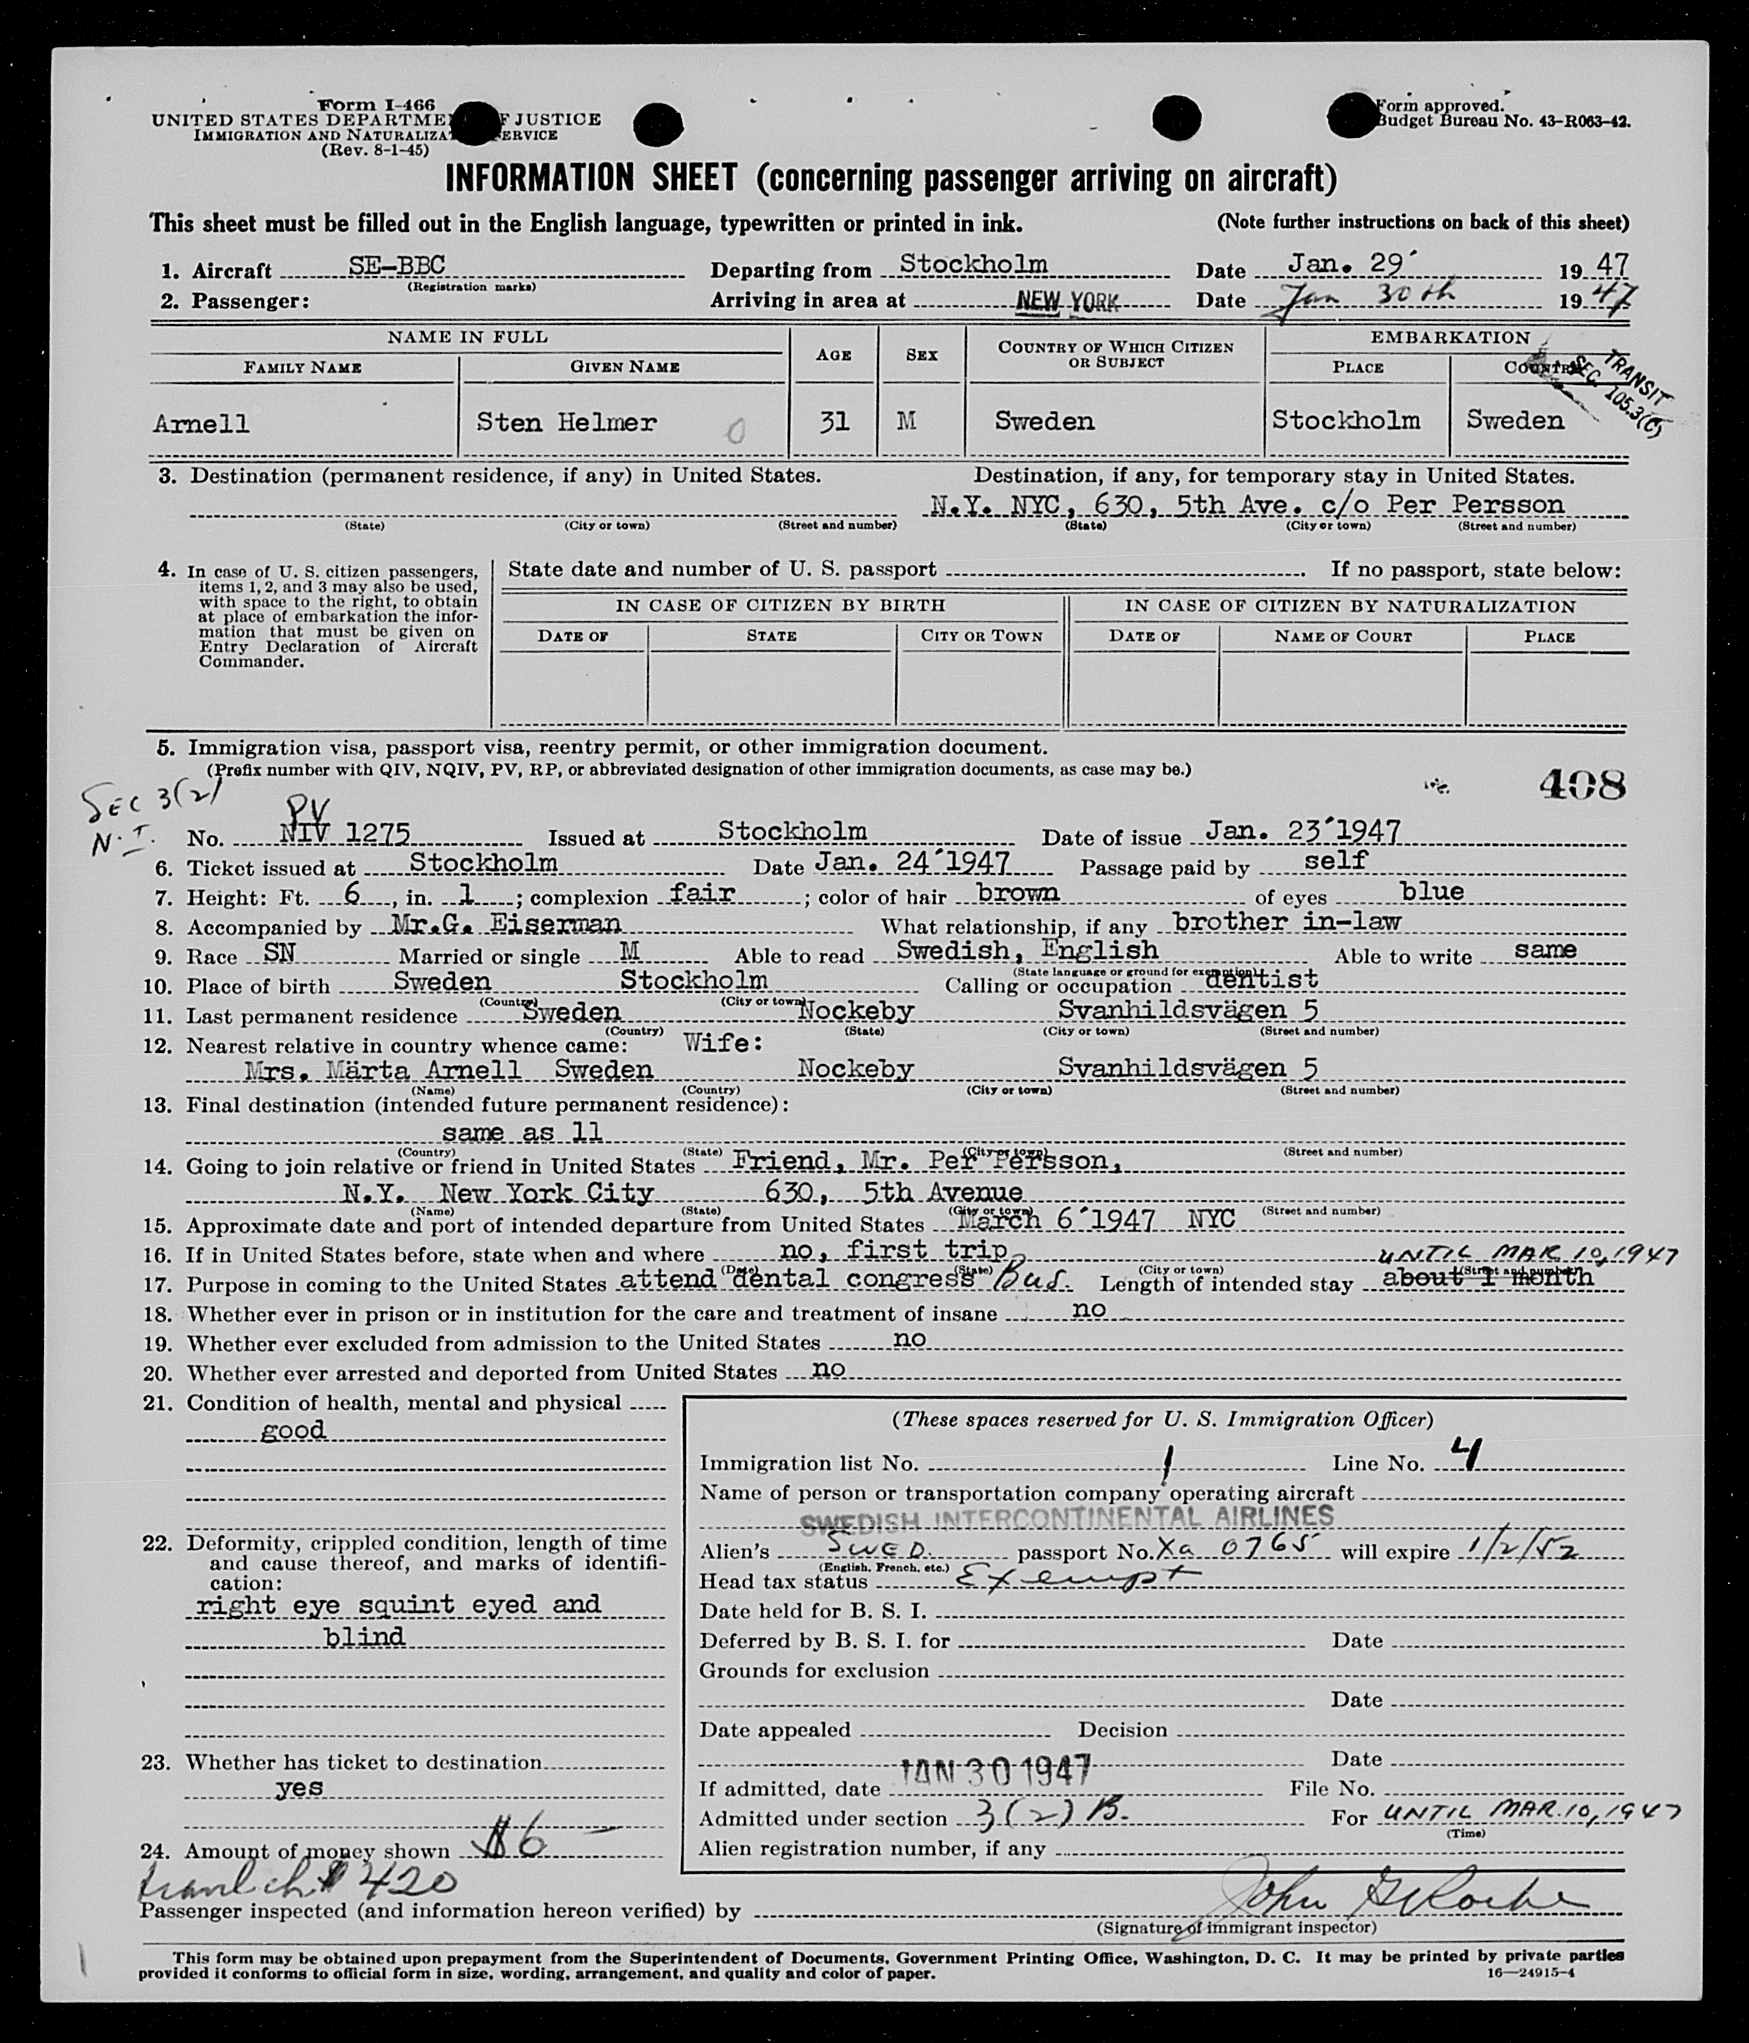 Form I-466
UNITED STATES DEPARTME F JUSTICE
IMMIGRATION AND NATURALIZA ERVICE
(Rev. 8-1-45)
Form approved.
Budget Bureau No. 43-R063-42.
INFORMATION SHEET (concerning passenger arriving on aircraft)
This sheet must be filled out in the English language, typewritten or printed in ink. (Note further instructions on back of this sheet)
1. Aircraft SE-BBC Departing from Stockholm Date Jan. 29 1947
(Registration marks)
2. Passenger: Arriving in area at NEW YORK Date Jan 30th 1947
NAME IN FULL AGE SEX COUNTRY OF WHICH CITIZEN OR SUBJECT EMBARKATION
FAMILY NAME GIVEN NAME PLACE COUNTRY
TRANSIT
SEC. 105.3(C)
Arnell Sten Helmer 0 31 M Sweden Stockholm Sweden
3. Destination (permanent residence, if any) in United States. Destination, if any, for temporary stay in United States.
N.Y. NYC, 630, 5th Ave. c/o Per Persson
(State) (City or town) (Street and number) (State) (City or town) (Street and number)
4. In case of U. S. citizen passengers, items 1, 2, and 3 may also be used, with space to the right, to obtain at place of embarkation the information that must be given on Entry Declaration of Aircraft Commander.
State date and number of U. S. passport If no passport, state below:
IN CASE OF CITIZEN BY BIRTH IN CASE OF CITIZEN BY NATURALIZATION
DATE OF STATE CITY OR TOWN DATE OF NAME OF COURT PLACE
5. Immigration visa, passport visa, reentry permit, or other immigration document.
(Prefix number with QIV, NQIV, PV, RP, or abbreviated designation of other immigration documents, as case may be.)
408
SEC 3(2)
N.I.
PV
No. NIV 1275 Issued at Stockholm Date of issue Jan. 23 1947
6. Ticket issued at Stockholm Date Jan. 24 1947 Passage paid by self
7. Height: Ft. 6, in. 1; complexion fair; color of hair brown of eyes blue
8. Accompanied by Mr.G. Eiserman What relationship, if any brother in-law
9. Race SN Married or single M Able to read Swedish, English Able to write same
(State language or ground for exemption)
10. Place of birth Sweden Stockholm Calling or occupation dentist
(Country) (City or town)
11. Last permanent residence Sweden Nockeby Svanhildsvägen 5
(Country) (State) (City or town) (Street and number)
12. Nearest relative in country whence came: Wife:
Mrs. Märta Arnell Sweden Nockeby Svanhildsvägen 5
(Name) (Country) (City or town) (Street and number)
13. Final destination (intended future permanent residence):
same as 11
(Country) (State) (City or town) (Street and number)
14. Going to join relative or friend in United States Friend, Mr. Per Persson,
N.Y. New York City 630, 5th Avenue
(Name) (State) (City or town) (Street and number)
15. Approximate date and port of intended departure from United States March 6 1947 NYC
16. If in United States before, state when and where no, first trip
UNTIL MAR 10, 1947
(Date) (State) (City or town) (Street and number)
17. Purpose in coming to the United States attend dental congress Bus. Length of intended stay about 1 month
18. Whether ever in prison or in institution for the care and treatment of insane no
19. Whether ever excluded from admission to the United States no
20. Whether ever arrested and deported from United States no
21. Condition of health, mental and physical
good
22. Deformity, crippled condition, length of time and cause thereof, and marks of identification:
right eye squint eyed and
blind
23. Whether has ticket to destination
yes
24. Amount of money shown $6
$420
(These spaces reserved for U. S. Immigration Officer)
Immigration list No. 1 Line No. 4
Name of person or transportation company operating aircraft
SWEDISH INTERCONTINENTAL AIRLINES
Alien's SWED. passport No. Xa 0765 will expire 1/2/52
(English, French, etc.)
Head tax status Exempt
Date held for B. S. I.
Deferred by B. S. I. for Date
Grounds for exclusion
Date
Date appealed Decision
Date
If admitted, date JAN 30 1947 File No.
Admitted under section 3(2) B. For UNTIL MAR. 10, 1947
(Time)
Alien registration number, if any
Passenger inspected (and information hereon verified) by John
(Signature of immigrant inspector)
This form may be obtained upon prepayment from the Superintendent of Documents, Government Printing Office, Washington, D. C. It may be printed by private parties
provided it conforms to official form in size, wording, arrangement, and quality and color of paper.
16—24915-4